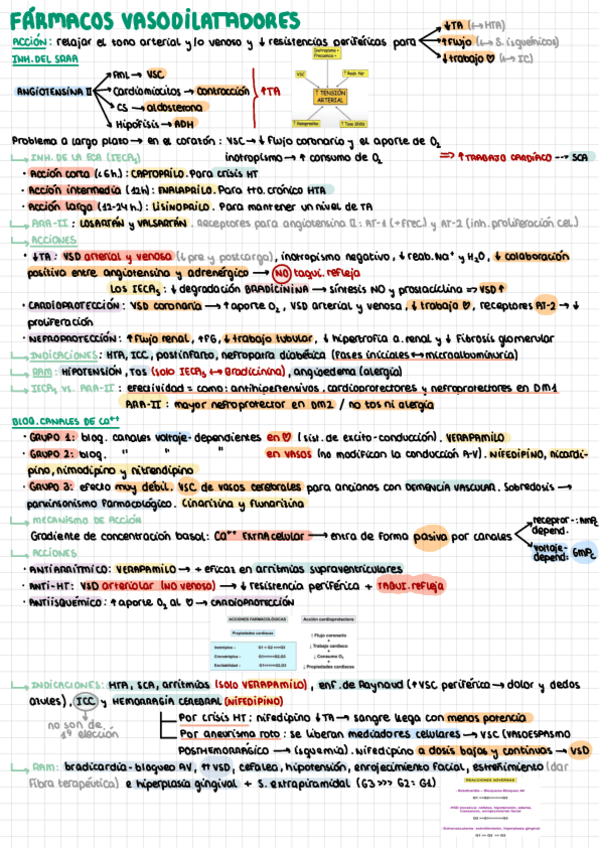 FÁRMACOS VASODILATADORES
ACCIÓN: relajar el tono arterial y/o venoso y ↓ resistencias periféricas para
↓TA (↔HTA)
↑Flujo (↔ S. isquémicos)
↓trabajo ♡ (↔ IC)
INH. DEL SRAA
ANGIOTENSINA II
AML → VSC
Cardiomiocitos → contracción
CS → aldosterona
Hipófisis → ADH
↑TA
Inotropismo + Frecuencia +
VSC
↑ Reab. Na+
↑ TENSIÓN ARTERIAL
Problema a largo plazo → en el corazón: VSC → ↓ flujo coronario y el aporte de O₂
inotropismo → ↑ consumo de O₂
⇒ ↑TRABAJO CARDÍACO --→ SCA
INH. DE LA ECA (IECAs)
· Acción corta (<6h): CAPTOPRILO. Para crisis HT
· Acción intermedia (12h): ENALAPRILO. Para tto. crónico HTA
· Acción larga (12-24h): LISINOPRILO. Para mantener un nivel de TA
ARA-II: LOSARTÁN y VALSARTÁN. Receptores para angiotensina II: AT-1 (+frec.) y AT-2 (inh. proliferación cel.)
ACCIONES
· ↓TA: VSD arterial y venosa (↓pre y postcarga), inotropismo negativo, ↓reab. Na⁺ y H₂O, ↓ colaboración
positiva entre angiotensina y adrenérgico → NO taqui. refleja
LOS IECAs: ↓ degradación BRADICININA → síntesis NO y prostaciclina ⇒ VSD↑
· CARDIOPROTECCIÓN: VSD coronaria → ↑aporte O₂, VSD arterial y venosa, ↓trabajo ♡, receptores AT-2 → ↓
proliferación
· NEFROPROTECCIÓN: ↑flujo renal, ↑FG, ↓trabajo tubular, ↓ hipertrofia a. renal y ↓ fibrosis glomerular
INDICACIONES: HTA, ICC, postinfarto, nefropatía diabética (fases iniciales ↔ microalbuminuria)
RAM: HIPOTENSIÓN, TOS (solo IECAs ↔ Bradicinina), angioedema (alergia)
IECAs VS. ARA-II: efectividad = como: antihipertensivos, cardioprotectores y nefroprotectores en DM1
ARA-II: mayor nefroprotector en DM2 / no tos ni alergia
BLOQ. CANALES DE Ca⁺⁺
· GRUPO 1: bloq. canales voltaje-dependientes en ♡ (sist. de excito-conducción). VERAPAMILO
· GRUPO 2: bloq. " " " en VASOS (no modifican la conducción A-V). NIFEDIPINO, nicardi-
pino, nimodipino y nitrendipino
· GRUPO 3: efecto muy débil. VSC de vasos cerebrales para ancianos con DEMENCIA VASCULAR. Sobredosis →
parkinsonismo farmacológico. Cinaritina y flunaritina
MECANISMO DE ACCIÓN
Gradiente de concentración basal: Ca⁺⁺ EXTRACelular → entra de forma pasiva por canales
receptor-depend.
voltaje-depend: GMPc
ACCIONES
· ANTIARRÍTMICO: VERAPAMILO → + eficaz en arritmias supraventriculares
· ANTI-HT: VSD arteriolar (NO venoso) → ↓ resistencia periférica + TAQUI. refleja
· ANTIISQUÉMICO: ↑aporte O₂ al ♡ → CARDIOPROTECCIÓN
ACCIONES FARMACOLÓGICAS
Propiedades cardíacas
Acción cardioprotectora
↑ Flujo coronario
+
↓ Trabajo cardíaco
+
↓ Consumo O₂
+
↓ Propiedades cardíacas
INDICACIONES: HTA, SCA, arritmias (solo VERAPAMILO), enf. de Raynaud (↑VSC periférica → dolor y dedos
azules), ICC y HEMORRAGIA CEREBRAL (NIFEDIPINO)
no son de 1ª elección
Por crisis HT: nifedipino ↓TA → sangre llega con menos potencia
Por aneurisma roto: se liberan mediadores celulares → VSC (VASOESPASMO
POSTHEMORRÁGICO → isquemia). Nifedipino a dosis bajas y continuas → VSD
RAM: bradicardia-bloqueo AV, ↑↑VSD, cefalea, hipotensión, enrojecimiento facial, estreñimiento (dar
fibra terapéutica) e hiperplasia gingival + S. extrapiramidal (G3 >>> G2 : G1)
REACCIONES ADVERSAS